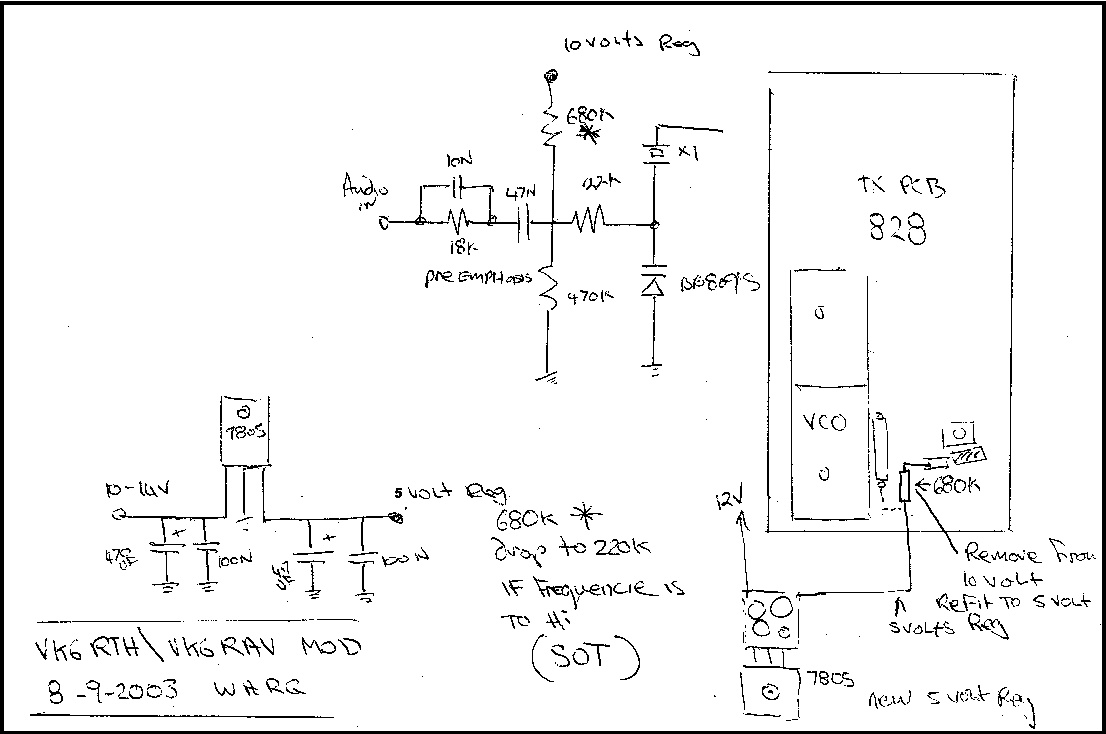 10 volts Reg
680K
*
X1
10N
Audio
IN
47N
22K
18K
PRE EMPHASIS
470K
TX PCB
828
VCO
680K
7805
10-14V
5 volt Reg
100N
100N
680K *
Drop to 220K
IF Frequencie is
TO Hi
(SOT)
12V
Remove From
10 volt
REFIT TO 5 VOLT
5VOLTS Reg
7805
new 5 volt Reg
VK6RTH\VK6RAV MOD
8-9-2003 WARG